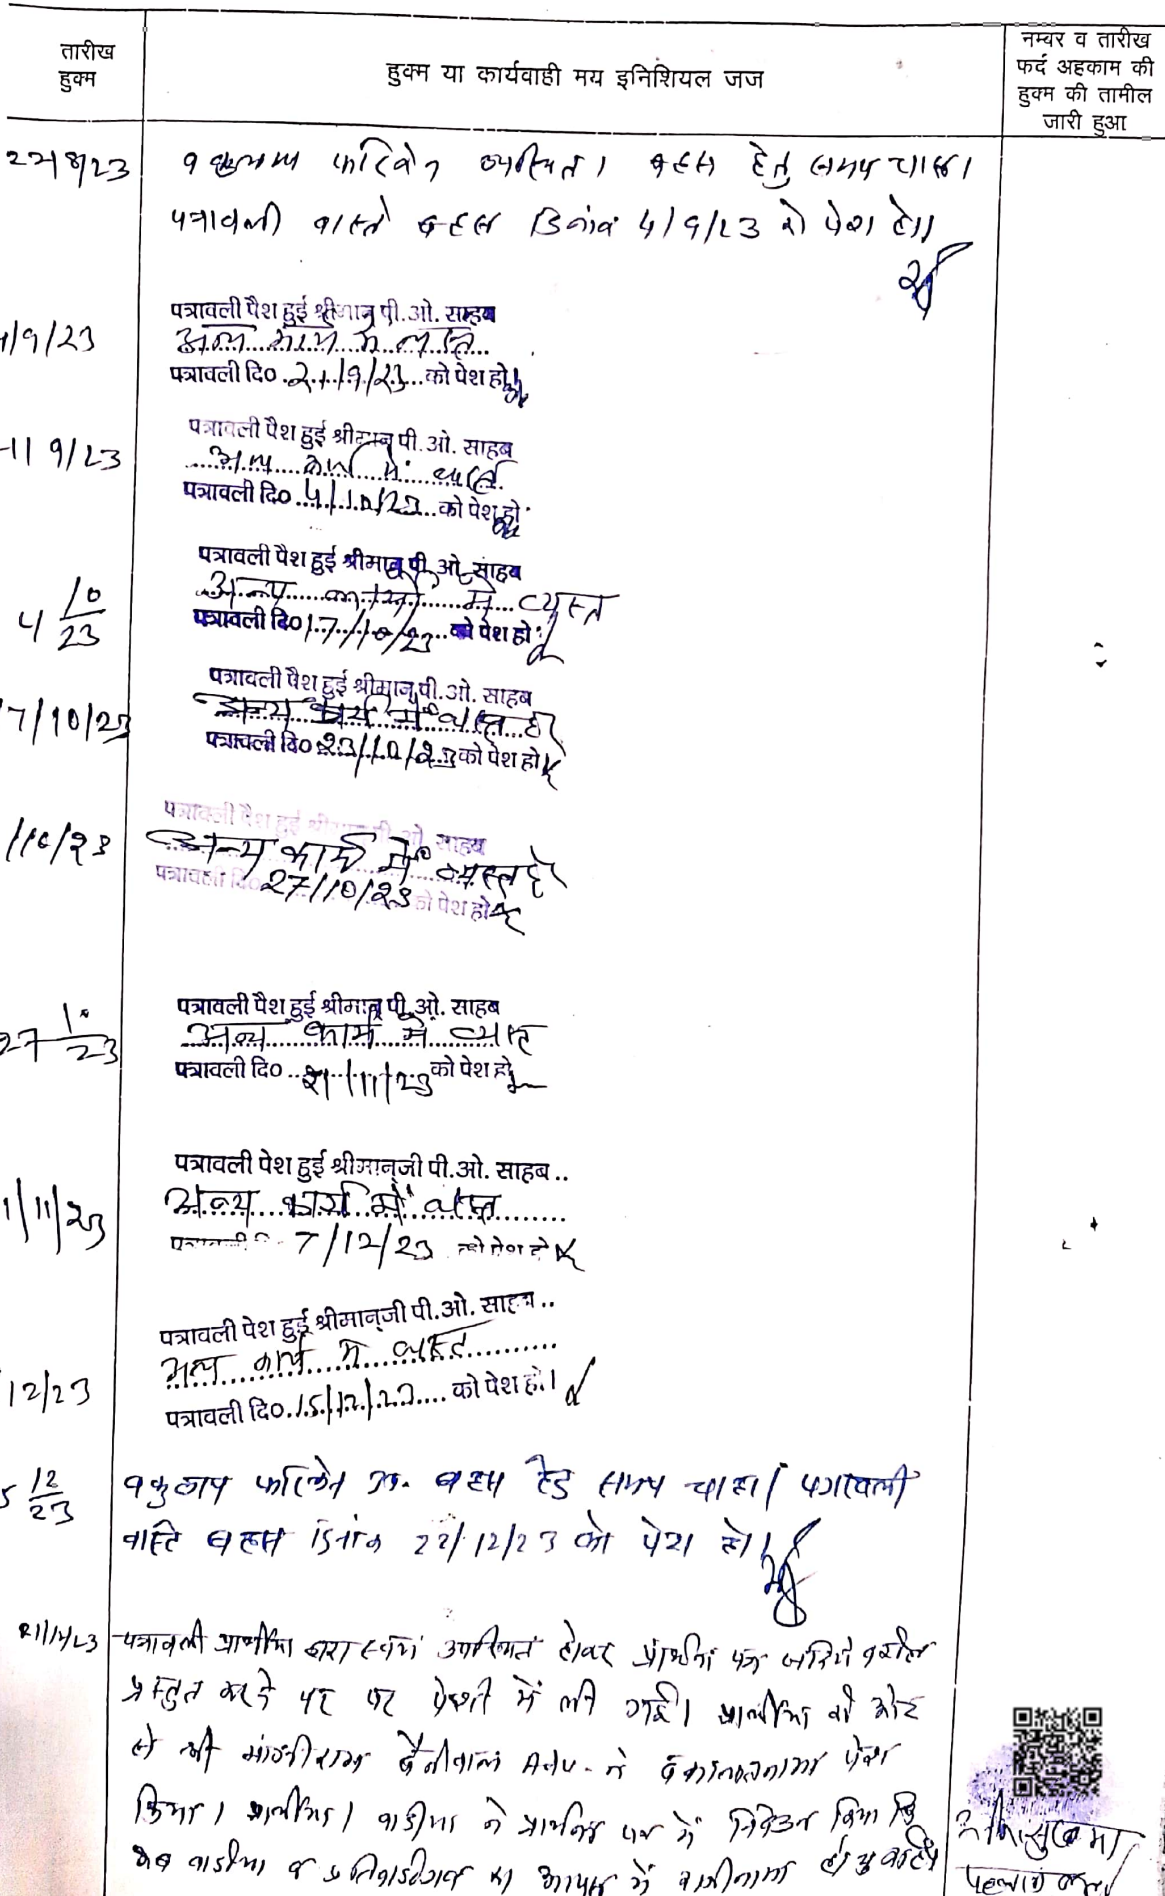 तारीख
हुक्म
हुक्म या कार्यवाही मय इनिशियल जज
नम्बर व तारीख
फर्द अहकाम की
हुक्म की तामील
जारी हुआ
उपस्थित। बहस हेतु समय चाहा।
पत्रावली वास्ते बहस दिनांक 4/9/23 को पेश हो।
/9/23
पत्रावली पैश हुई श्रीमान् पी.ओ. साहब
पत्रावली दि० 21/9/23 को पेश हो
9/23
पत्रावली पैश हुई श्रीमान् पी.ओ. साहब
अन्य कार्य में व्यस्त
पत्रावली दि० 4/10/23 को पेश हो
4 10/23
पत्रावली पैश हुई श्रीमान् पी.ओ. साहब
अन्य कार्यो में व्यस्त
पत्रावली दि० 17/10/23 को पेश हो
7/10/23
पत्रावली पैश हुई श्रीमान् पी.ओ. साहब
अन्य कार्य में व्यस्त है
पत्रावली दि० 23/10/23 को पेश हो
/10/23
पत्रावली पैश हुई श्रीमान् पी.ओ. साहब
अन्य कार्य में व्यस्त है
पत्रावली दि० 27/10/23 को पेश हो
27 10/23
पत्रावली पैश हुई श्रीमान् पी.ओ. साहब
अन्य कार्य में व्यस्त
पत्रावली दि० 21/11/23 को पेश हो
1/11/23
पत्रावली पेश हुई श्रीमान्जी पी.ओ. साहब..
अन्य कार्य में व्यस्त
पत्रावली दि० 7/12/23 को पेश हो
12/23
पत्रावली पेश हुई श्रीमान्जी पी.ओ. साहब..
अन्य कार्य में व्यस्त
पत्रावली दि० 15/12/23 को पेश हो।
5 12/23
बहस हेतु समय चाहा। पत्रावली
वास्ते बहस दिनांक 22/12/23 को पेश हो।
पत्रावली प्रार्थीया द्वारा स्वयं उपस्थित होकर प्रार्थना पत्र जरिये वकील
प्रस्तुत करने पर पेशी में ली गई। प्रार्थीया की ओर
से श्री मांगीराम बैनीवाल Adv. ने वकालतनामा पेश
किया। प्रार्थीया / वादीया ने प्रार्थना पत्र में निवेदन किया कि
अब वादीया व प्रतिवादीगण का आपस में राजीनामा हो चुका है।